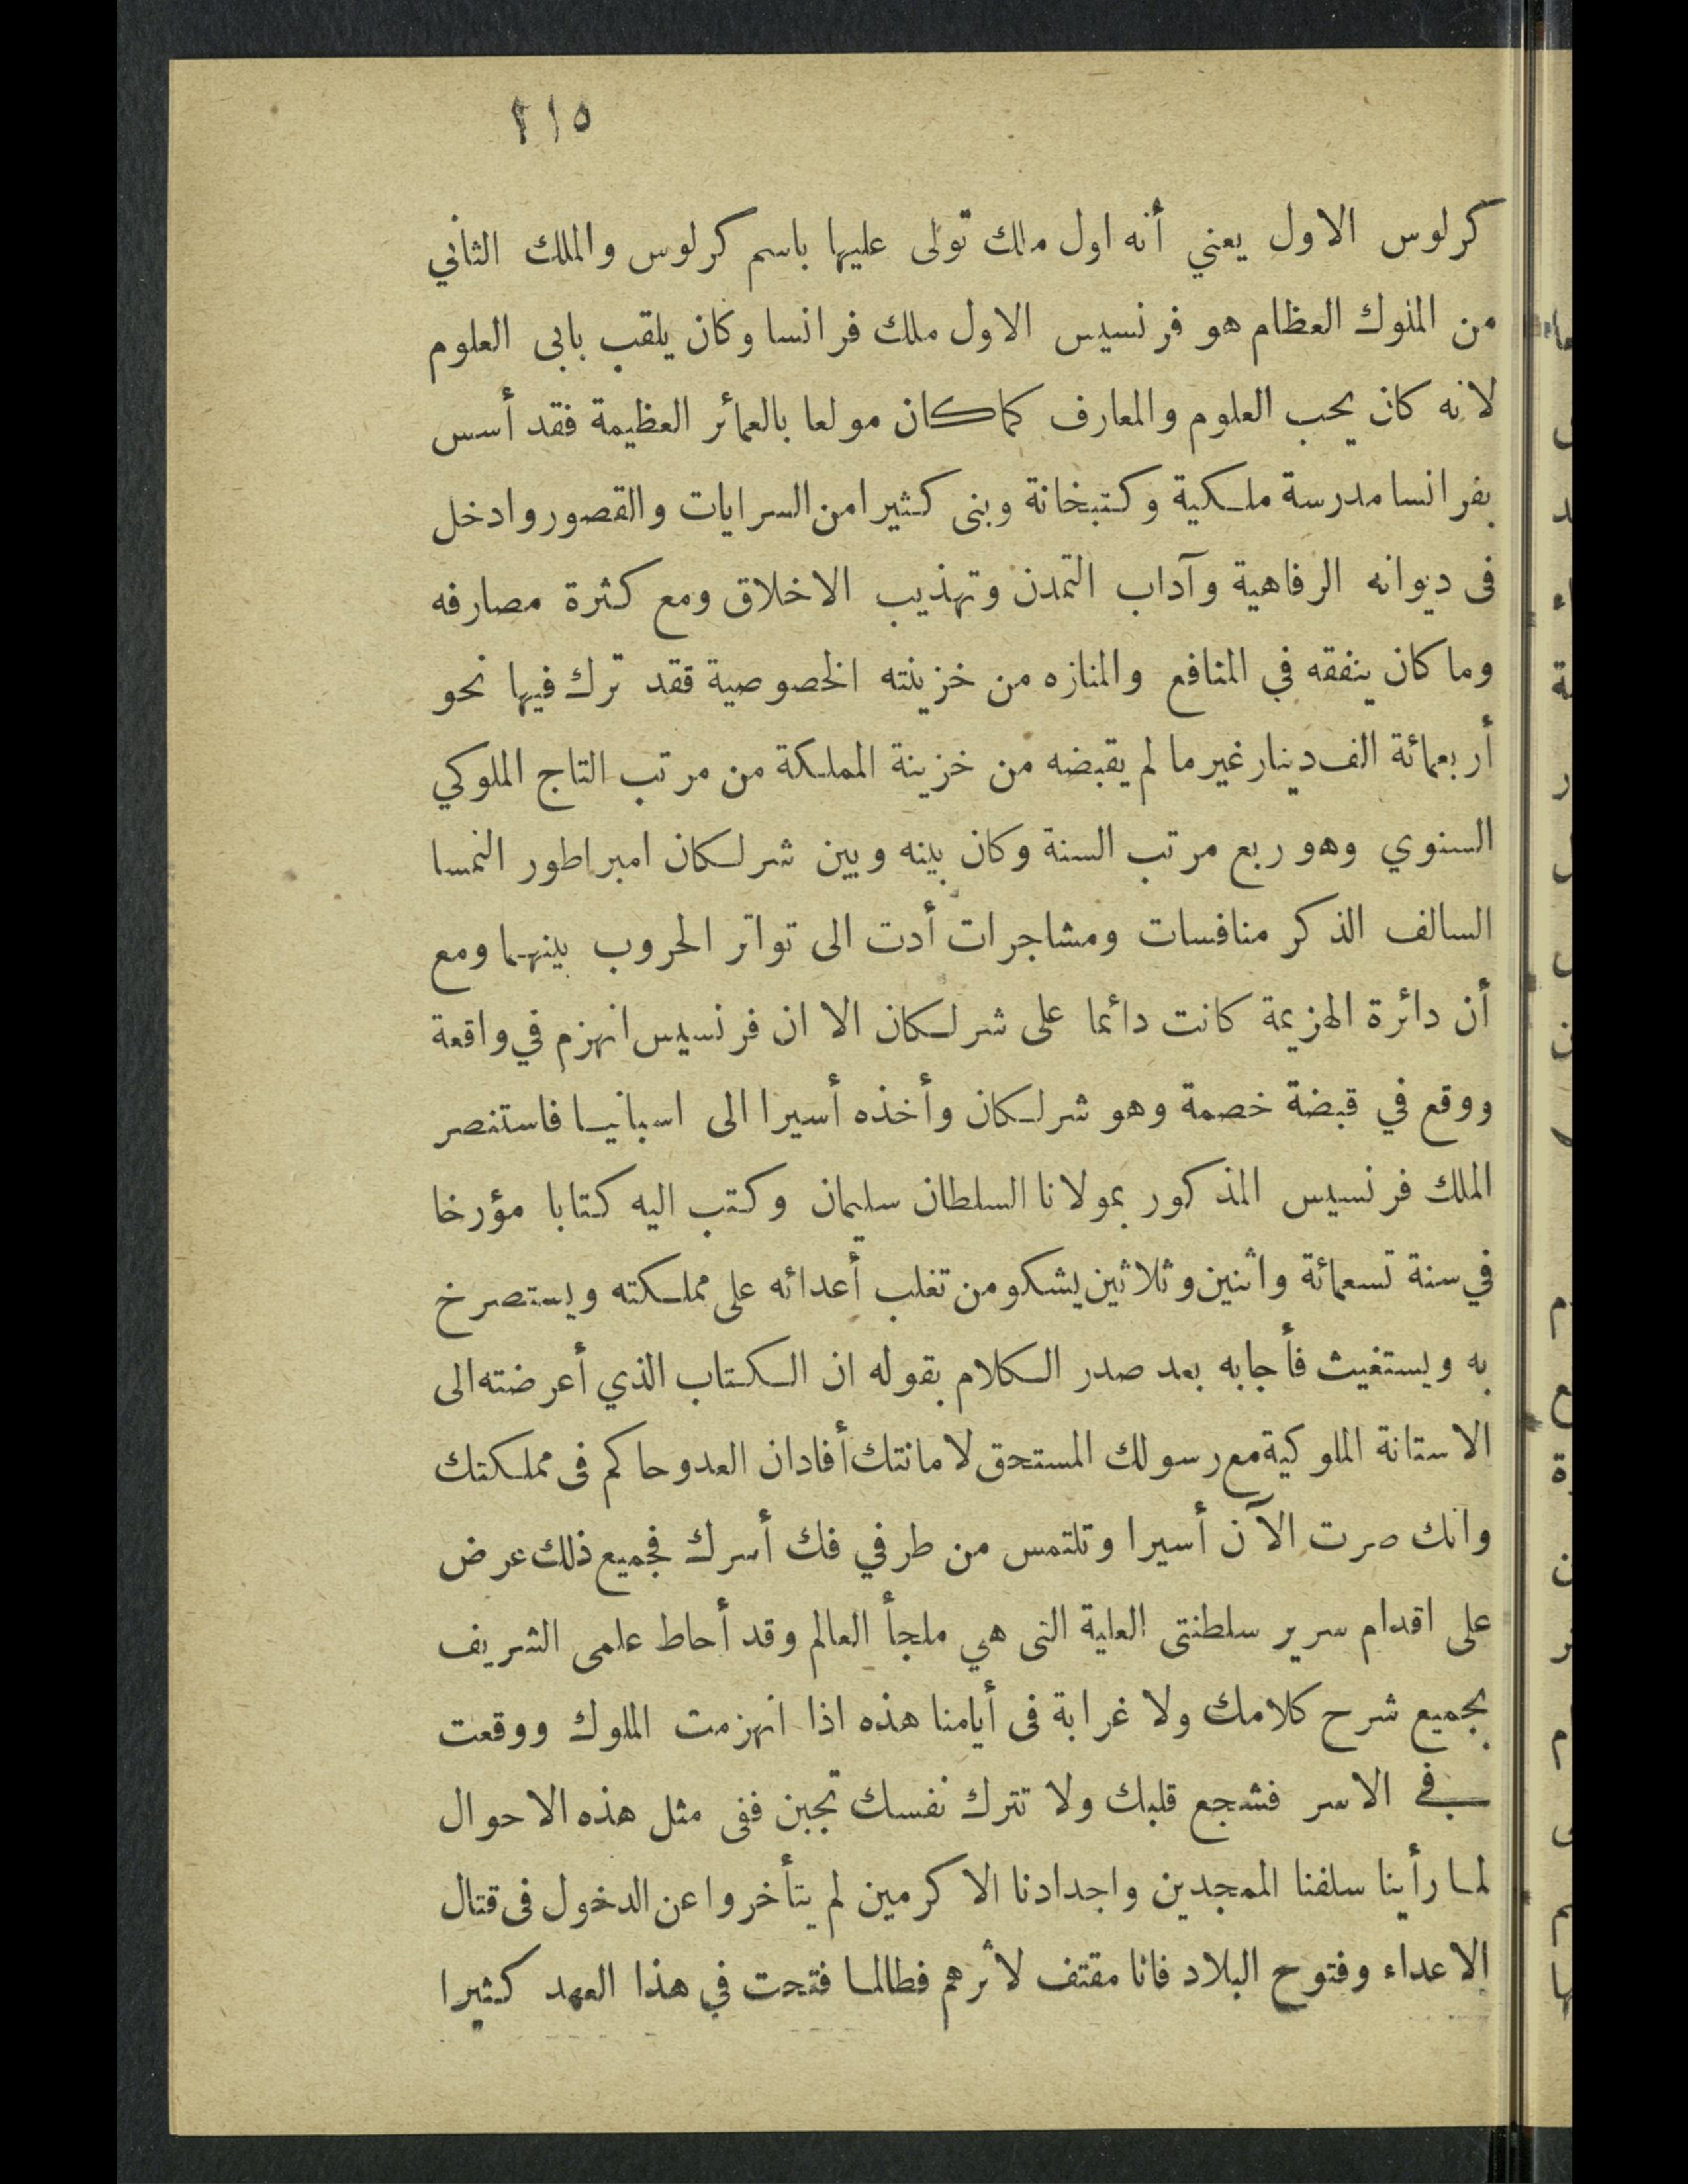 ٢١٥
كرلوس الاول يعني أنه اول ملك تولى عليها باسم كرلوس والملك الثاني
من الملوك العظام هو فرنسيس الاول ملك فرانسا وكان يلقب بابى العلوم
لانه كان يحب العلوم والمعارف كما كان مولعا بالعمائر العظيمة فقد أسس
بفرانسا مدرسة ملكية وكتبخانة وبنى كثيرا من السرايات والقصور وادخل
فى ديوانه الرفاهية وآداب التمدن وتهذيب الاخلاق ومع كثرة مصارفه
وما كان ينفقه في المنافع والمنازه من خزينته الخصوصية فقد ترك فيها نحو
أربعمائة الف دينار غير ما لم يقبضه من خزينة المملكة من مرتب التاج الملوكي
السنوي وهو ربع مرتب السنة وكان بينه وبين شرلكان امبراطور النمسا
السالف الذكر منافسات ومشاجرات أدت الى تواتر الحروب بينهما ومع
أن دائرة الهزيمة كانت دائما على شرلكان الا ان فرنسيس انهزم في واقعة
ووقع في قبضة خصمة وهو شرلكان وأخذه أسيرا الى اسبانيا فاستنصر
الملك فرنسيس المذكور بمولانا السلطان سليمان وكتب اليه كتابا مؤرخا
في سنة تسعمائة واثنين وثلاثين يشكو من تغلب أعدائه على مملكته ويستصرخ
به ويستغيث فأجابه بعد صدر الكلام بقوله ان الكتاب الذي أعرضته الى
الاستانة الملوكية مع رسولك المستحق لامانتك أفاد ان العدو حاكم فى مملكتك
وانك صرت الآن أسيرا وتلتمس من طرفي فك أسرك فجميع ذلك عرض
على اقدام سرير سلطنتى العلية التى هي ملجأ العالم وقد أحاط علمى الشريف
بجميع شرح كلامك ولا غرابة فى أيامنا هذه اذا انهزمت الملوك ووقعت
في الاسر فشجع قلبك ولا تترك نفسك تجبن ففى مثل هذه الاحوال
لما رأينا سلفنا الممجدين واجدادنا الاكرمين لم يتأخروا عن الدخول فى قتال
الاعداء وفتوح البلاد فانا مقتف لاثرهم فطالما فتحت في هذا العهد كثيرا